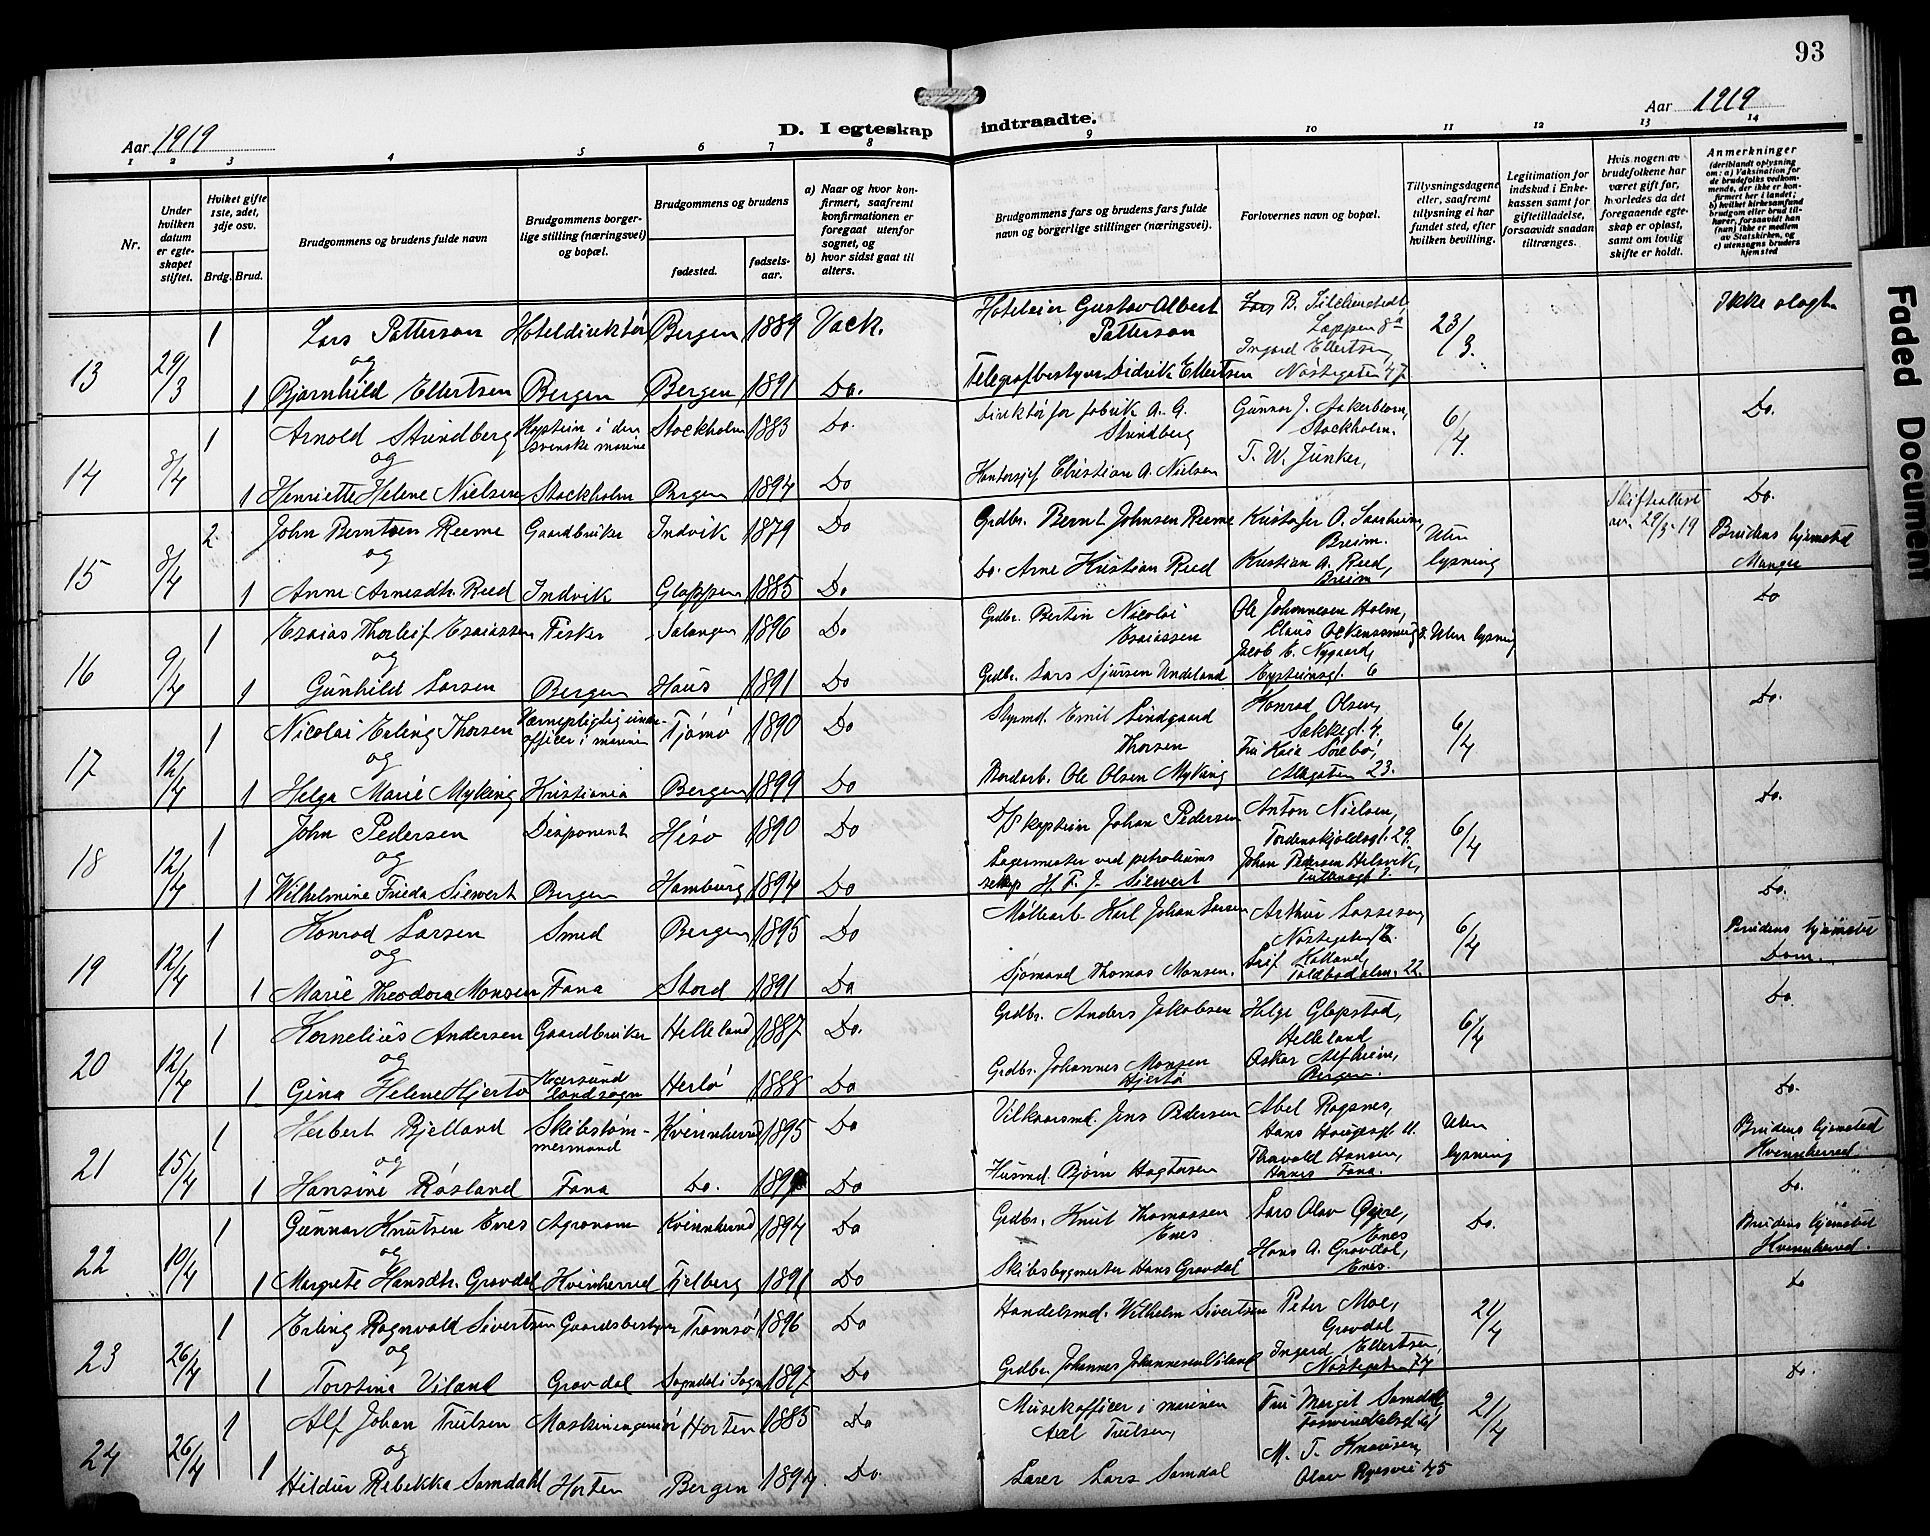 93
Aar 1919
D. I egteskap indtraadte.
Aar 1919
1 2 3 4 5 6 7 8 9 10 11 12 13 14
Nr.
Under hvilken datum er egteskapet stiftet.
Hvilket gifte 1ste, 2det, 3dje osv.
Brdg. Brud.
Brudgommens og brudens fulde navn
Brudgommens borgerlige stilling (næringsvei) og bopæl.
Brudgommens og brudens
fødested.
fødselsaar.
a) Naar og hvor konfirmert, saafremt konfirmationen er foregaat utenfor sognet, og
b) hvor sidst gaat til alters.
Brudgommens fars og brudens fars fulde navn og borgerlige stillinger (næringsvei).
Forlovernes navn og bopæl.
Tillysningsdagene eller, saafremt tillysning ei har fundet sted, efter hvilken bevilling.
Legitimation for indskud i Enkekassen samt for giftetilladelse, forsaavidt saadan tiltrænges.
Hvis nogen av brudefolkene har været gift før, hvorledes da det foregaaende egteskap er opløst, samt om lovlig skifte er holdt.
Anmerkninger (deriblandt oplysning om: a) Vaksination for de brudefolks vedkommende, der ikke er konfirmert her i landet; b) hvilket kirkesamfund brudgom eller brud tilhører, forsaavidt han (hun) ikke er medlem av Statskirken, og c) utensogns bruders hjemsted
13 29/3 1 Lars Patterson Hoteldirektør Bergen 1889 Vack. Hoteleier Gustav Albert Patterson Lars B. 23/3. Ikke slegt
og
1 Bjarnhild Ellertsen Bergen Bergen 1891 Do. Telegrafbestyrer Didrik Ellertsen Ingard Ellertsen, Nøstegaten 47
14 8/4 1 Arnold Strindberg Kaptein i den svenske marine Stockholm 1883 Do. Direktør for fabrik A. G. Strindberg Gunnar J. Aakerblom, Stockholm. 6/4. Do.
og
1 Henriette Helene Nielsen Stockholm Bergen 1894 Do Christian A. Nielsen T. W. Junker,
15 8/4 2. John Berntsen Reeme Gaardbruker Indvik 1879 Do Grdbr. Bernt Johnsen Reeme Kristofer O. Saarheim, Breim. Uten lysning Skifteattest av 29/3-19 Do. Brudens hjemsted Manger
og
1 Anne Arnesdtr. Reed Indvik Gloppen 1885 Do Do. Arne Kristian Reed Kristian A. Reed, Breim
16 9/4 1 Esaias Thorleif Esaiassen Fisker Salangen 1896 Do Grdbr. Bertin Nicolai Esaiassen Ole Johannesen Holm, Claus Uten lysning Do
og
1 Gunhild Larsen Bergen Haus 1891 Do Grdbr. Lars Sjursen Undeland Jacob E. Nygaard, Eysteinsgt. 6
17 12/4 1 Nicolai Erling Thorsen Værnepligtig underofficer i marinen Tjømø 1890 Do Styrmd. Emil Lindgaard Thorsen Konrad Olsen, Sækkegt. 4. 6/4 Do.
og
1 Helga Marie Myking Kristiania Bergen 1899 Do Bordarb. Ole Olsen Myking Fru Kaia Sørebø, Allegaten 23.
18 12/4 1 John Pedersen Disponent Hisø 1890 Do D/S kaptein Johan Pedersen Anton Nielsen, Tordenskjoldsgt. 29. 6/4 Do.
og
1 Wilhelmine Frieda Siewert Bergen Hamburg 1894 Do Lagermester ved petroliumsselskap H. F. J. Siewert Johan Petersen Helsvik,
19 12/4 1 Konrad Larsen Smed Bergen 1895 Do Møllearb. Karl Johan Larsen Arthur Lassesen, Nøstegaten 12. 6/4 Do. Brudens hjemsted Dom.
og
1 Marie Theodora Monsen Fana Stord 1891 Do Sjømand Thomas Monsen. Leif Hatland, Toldbodalm. 22.
20 12/4 1 Kornelius Andersen Gaardbruker Helleland 1887 Do. Grdbr. Anders Jakobsen Helge Glopstad, Helleland 6/4 Do.
og
1 Gina Helene Hjertø Egersund landsogn Herlø 1888 Do Grdbr. Johannes Monsen Hjertø Oskar Alfheim, Bergen.
21 15/4 1 Herbert Bjelland Skibstømmermand Kvinnherred 1895 Do Vilkaarsmd. Jens Pedersen Abel Rogsnes, Hans Haugesgt. 11. Uten lysning Do. Brudens hjemsted Kvinnherred
og
1 Hansine Røsland Fana Do. Do Husmd. Bjørn Hagtosen Thorvald Hansen, Fana.
22 19/4 1 Gunnar Knutsen Enes Agronom Kvinnherred 1894 Do Grdbr. Knut Thomassen Enes Lars Olav Øyre, Enes Do. Do. Brudens hjemsted Kvinnherred.
og
1 Margrete Hansdtr. Gravdal Kvinherred Fjelberg 1891 Do Skibsbygmester Hans Gravdal Hans A. Gravdal, Enes.
23 26/4 1 Erling Ragnvald Sivertsen Gaardsbestyrer Tromsø 1896 Do Handelsmd. Wilhelm Sivertsen Peter Moe, Gravdal 21/4 Do
og
1 Torstina Viland Gravdal Sogndal i Sogn 1897 Do Grdbr. Johannes Johannesen Viland Ingard Ellertsen, Nøstegaten 74
24 26/4 1 Alf Johan Trulsen Maskiningeniør Horten 1885 Do Musikofficer i marinen Axel Trulsen, Fru Margit Samdal, 21/4 Do.
og
1 Hildur Rebekka Samdahl Horten Bergen 1894 Do. Laser Lars Samdal M. T. Knausen, Olav Ryesvei 45
Faded Document